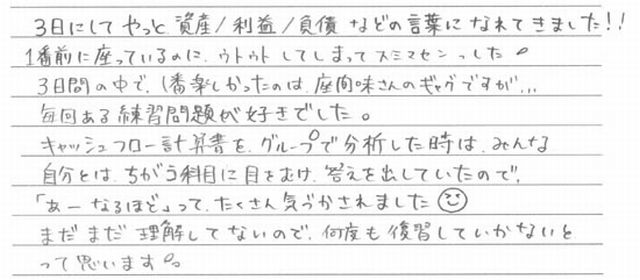 3日にしてやっと資産/利益/負債などの言葉になれてきました!!
1番前に座っているのに、ウトウトしてしまってスミマセンっした。
3日間の中で、1番楽しかったのは、座間味さんのギャグですが、…
毎回ある練習問題が好きでした。
キャッシュフロー計算書を、グループで分析した時は、みんな
自分とは、ちがう科目に目をむけ、答えを出していたので、
「あーなるほど」って、たくさん気づかされました☺
まだまだ理解してないので、何度も復習していかないと
って思います。